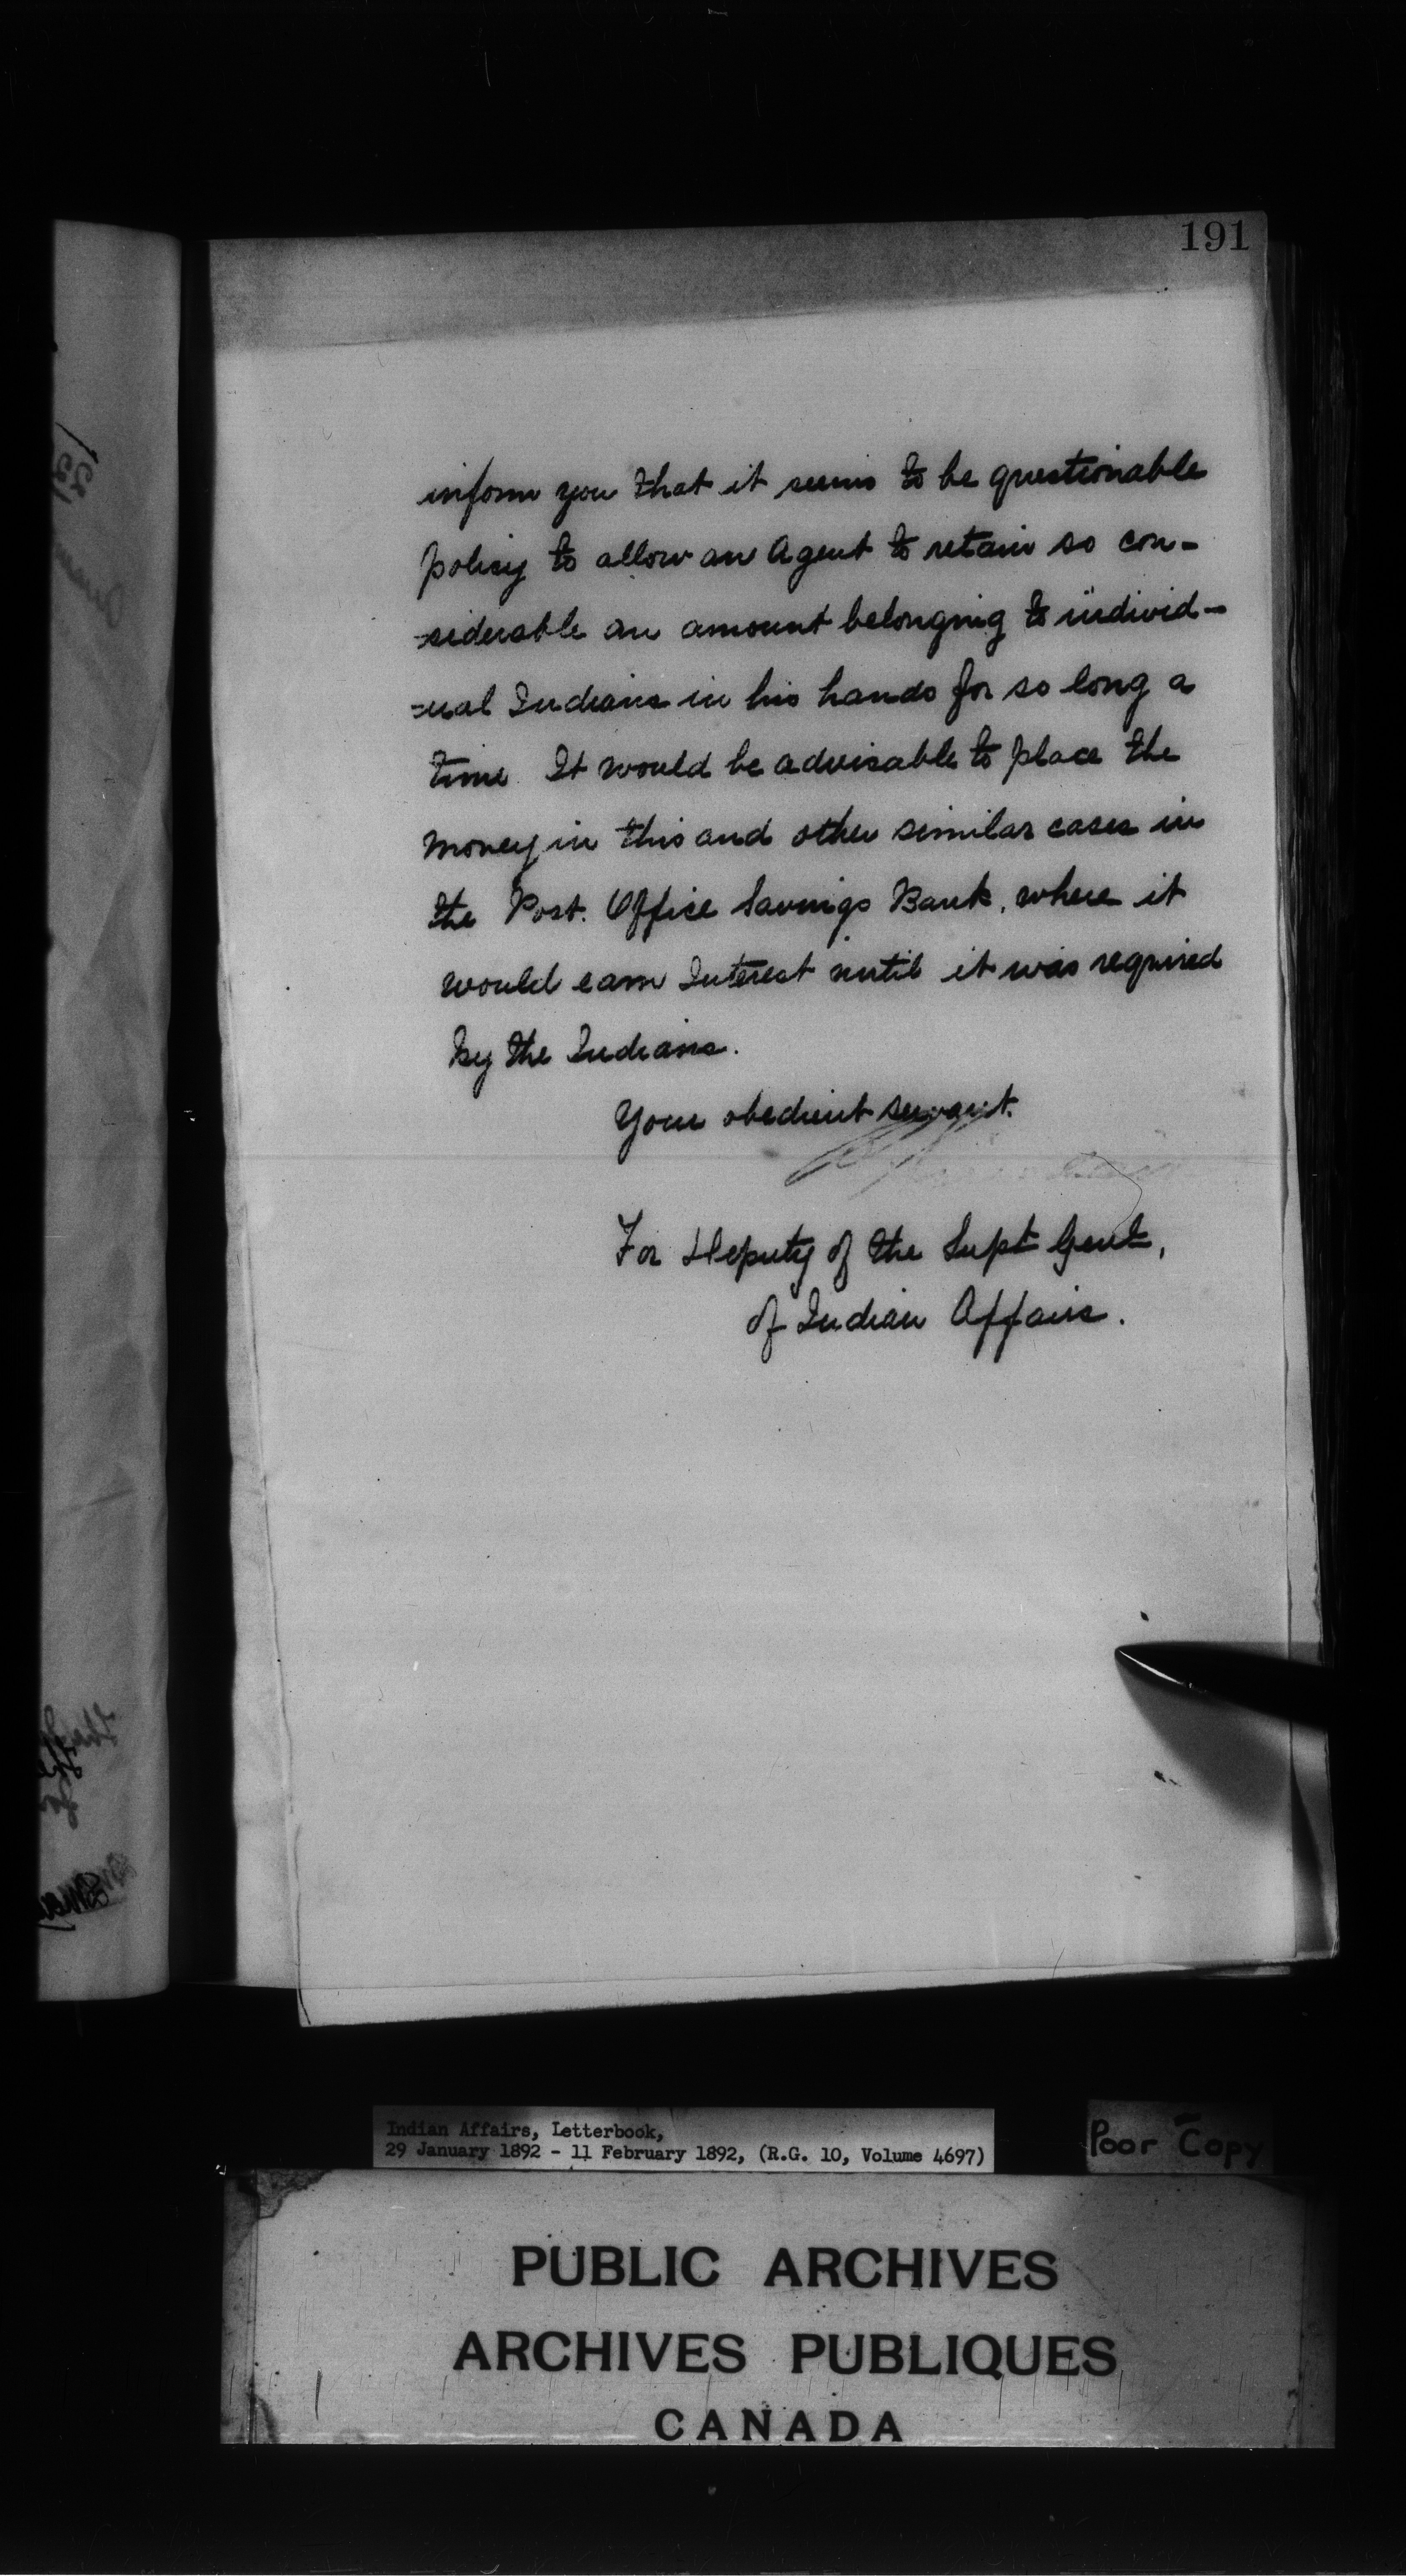 191
inform you that it seems to be questionable
policy to allow an Agent to retain so con-
=siderable an amount belonging to individ-
=ual Indians in his hands for so long a
time. It would be advisable to place the
money in this and other similar cases in
the Post. Office Savings Bank, where it
would earn Interest until it was required
by the Indians.
Your obedient servant.
For Deputy of the Supt Genl,
of Indian Affairs.
Indian Affairs, Letterbook,
29 January 1892 - 11 February 1892, (R.G. 10, Volume 4697)
Poor Copy
PUBLIC ARCHIVES
ARCHIVES PUBLIQUES
CANADA